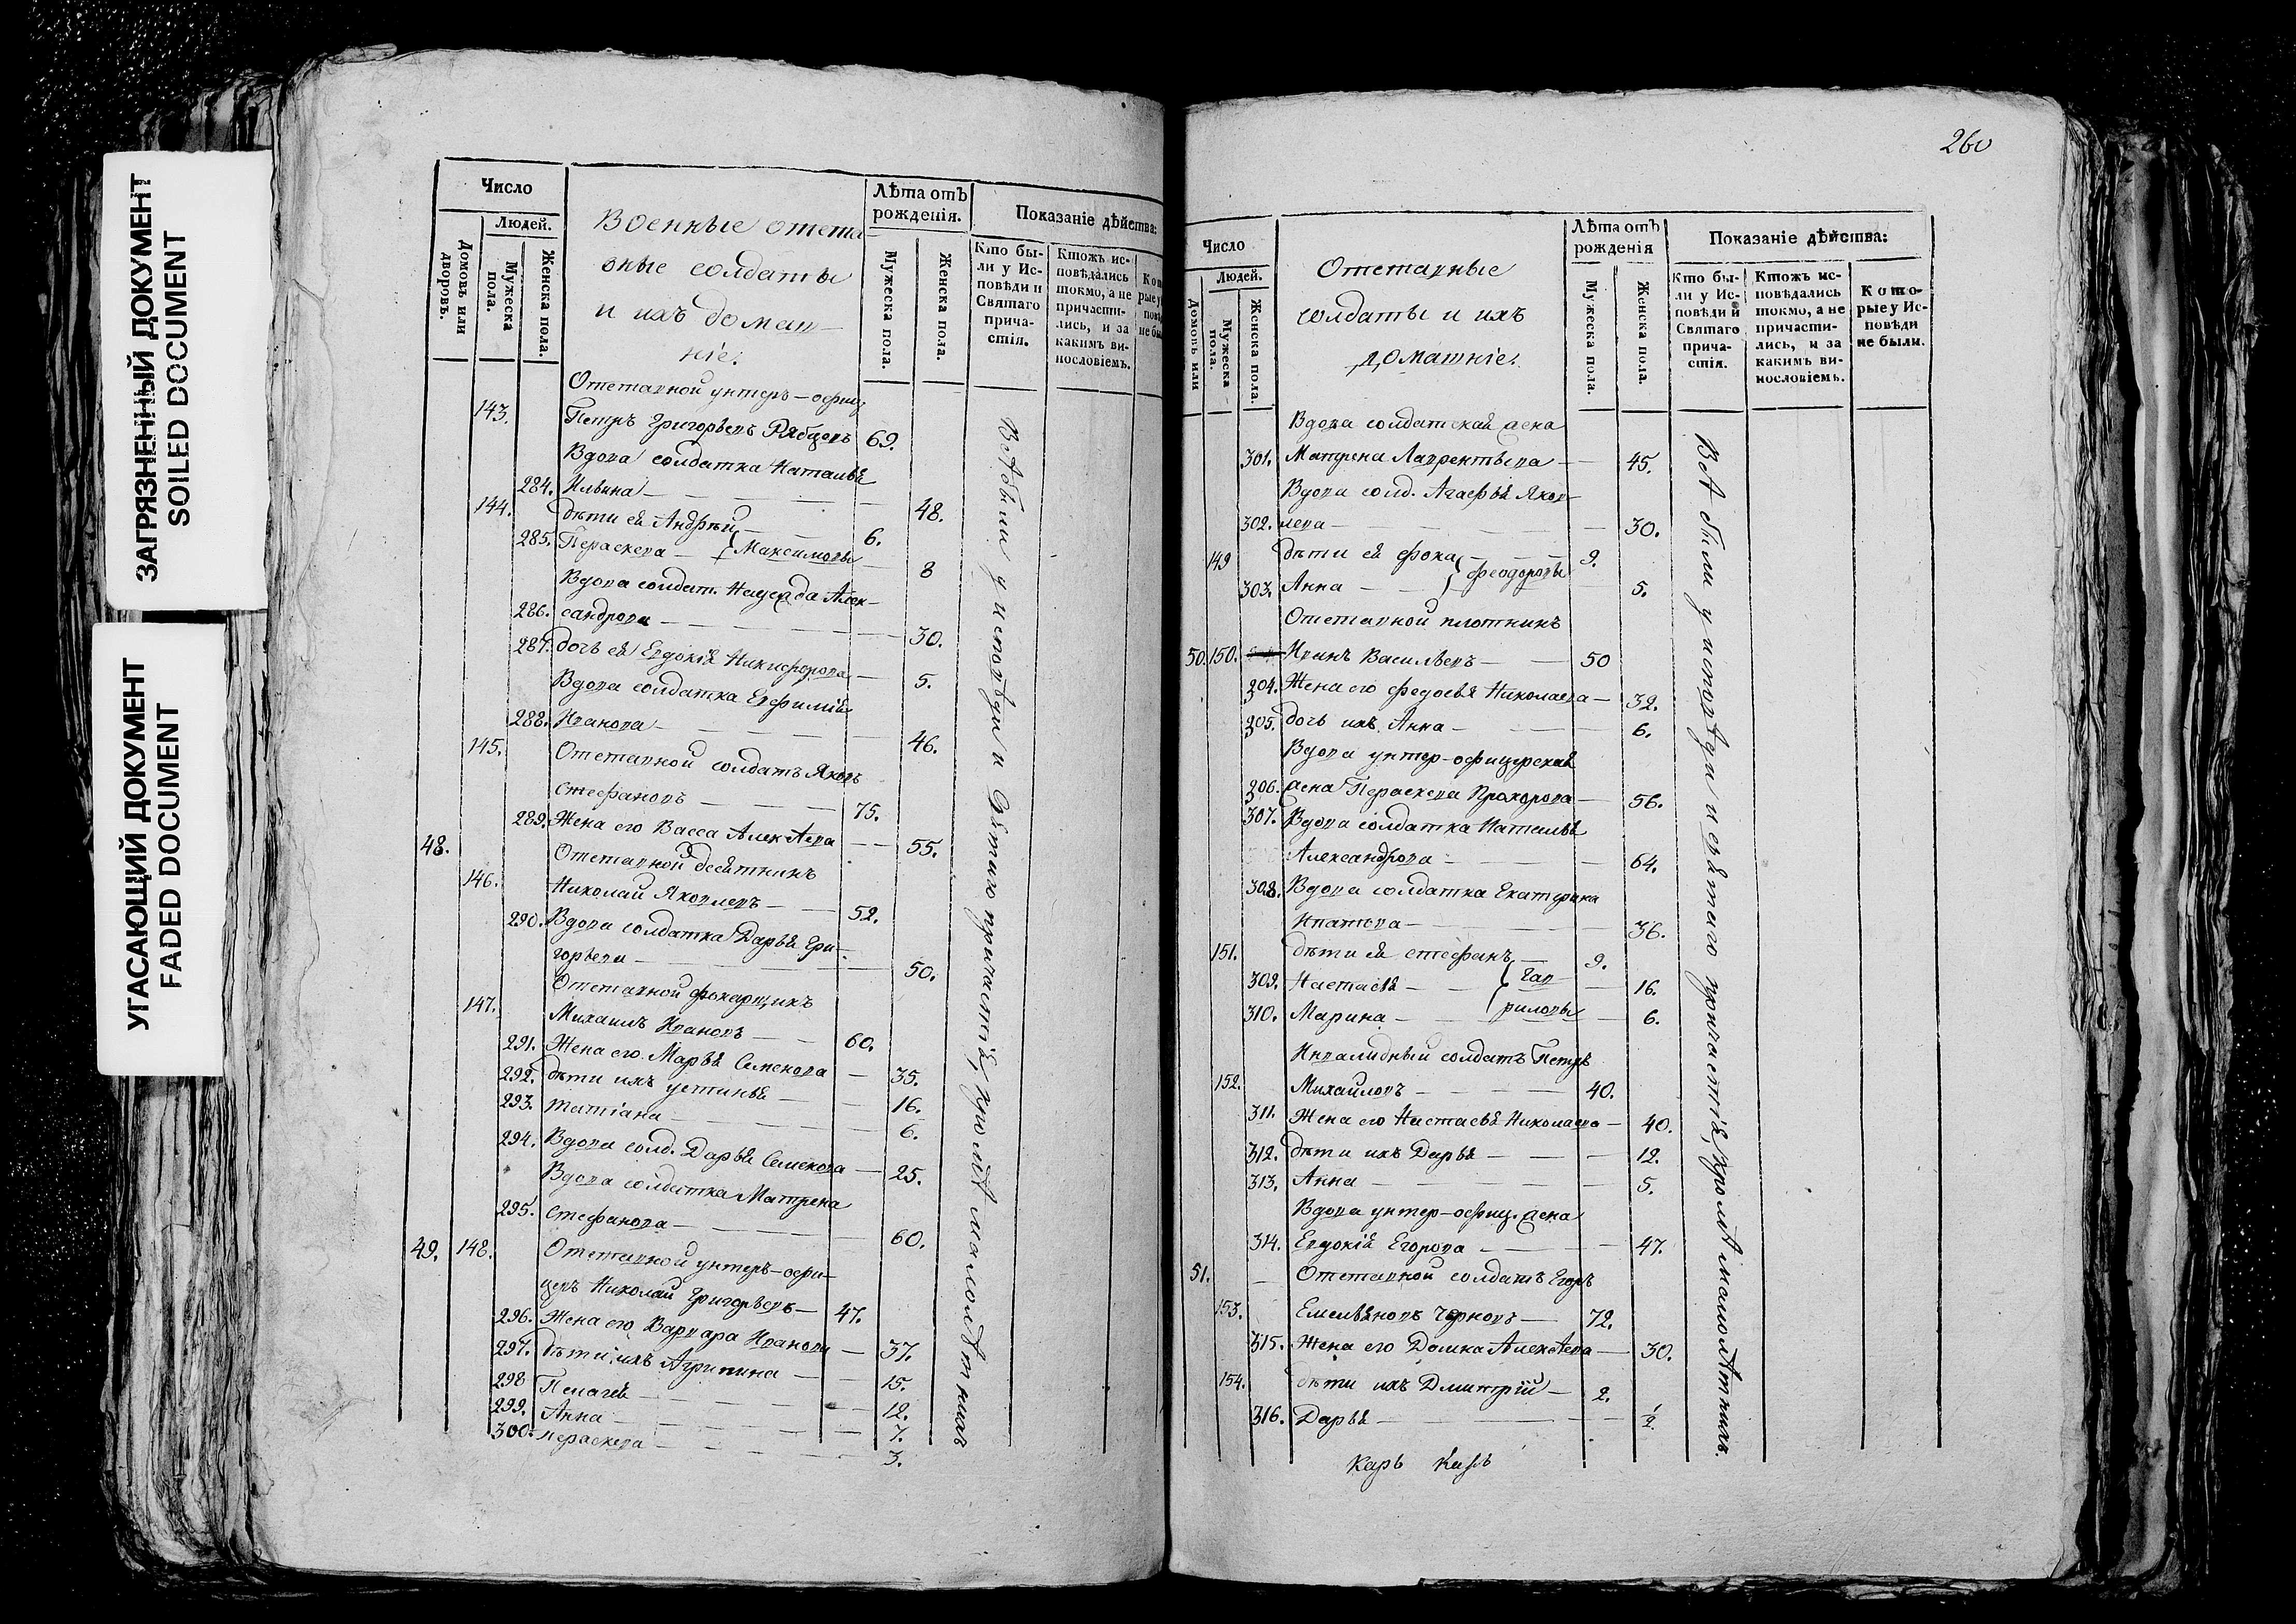 ЗАГРЯЗНЕННЫЙ ДОКУМЕНТ
SOILED DOCUMENT
УГАСАЮЩИЙ ДОКУМЕНТ
FADED DOCUMENT
Число
Людей.
Домовъ или дворовъ.
Мужеска пола.
Женска пола.
Военные отста-
вные солдаты
и ихъ домаш-
ніе:
Лѣта отъ рожденія.
Мужеска пола.
Женска пола.
Показаніе дѣйства:
Кто бы-
ли у Ис-
повѣди и
Святаго
прича-
стія.
Ктожъ ис-
повѣдались
токмо, а не
причасти-
лись, и за
какимъ ви-
нословіемъ.
Отставной унтеръ-офиц
143. Петръ Григорьевъ Рябцевъ 69.
Вдова солдатка Наталья
284. Ильина 48.
144. дѣти ея Андрей 6.
285. Параскева Максимовы 8
Вдова солдат. Надежда Алек-
286. сандрова 30.
287. дочь ея Евдокія Никифорова 5.
Вдова солдатка Евфимія
288. Иванова 46.
145. Отставной солдатъ Яковъ
Стефановъ 75.
289. Жена его Васса Алексѣева 55.
48. Отставной десятникъ
146. Николай Яковлевъ 52.
290. Вдова солдатка Дарья Гри-
горьева 50.
Отставной
147. Михаилъ Ивановъ 60.
291. Жена его Марья Семенова 35.
292. дѣти ихъ устинья 16.
293. татіана 6.
294. Вдова солд. Дарья Семенова 25.
Вдова солдатка Матрена
295. Стефанова 60.
49. 148. Отставной унтеръ-офи-
церъ Николай Григорьевъ 47.
296. Жена его Варвара Иванова 37.
297. дѣти ихъ Агрипина 15.
298 Пелагея 12.
299. Анна 7.
300. параскева 3.
Всѣ были у исповѣди и Святаго причастія, кромѣ малолѣтнихъ
260
Число
Людей.
Домовъ или
Мужеска пола.
Женска пола.
Отставные
солдаты и ихъ
домашніе.
Лѣта отъ рожденія
Мужеска пола.
Женска пола.
Показаніе дѣйства:
Кто бы-
ли у Ис-
повѣди и
Святаго
прича-
стія.
Ктожъ ис-
повѣдались
токмо, а не
причасти-
лись, и за
какимъ ви-
нословіемъ.
Кото-
рые у Ис-
повѣди
не были.
Вдова солдатская жена
301. Матрена Лаврентьева 45.
Вдова солд. Агафья Яков-
302. лева 30.
149 дѣти ея фока 9.
303. Анна феодоровы 5.
Отставной плотникъ
50. 150. Иванъ Васильевъ 50
204. Жена его федосья Николаева 32.
205. дочь ихъ Анна 6.
Вдова унтер-офицерская
206. жена Параскева Прохорова 56.
307. Вдова солдатка Наталья
Александрова 64.
308. Вдова солдатка Екатерина
Ипатова 36.
151. дѣти ея стефанъ 9.
309. Настасія Гав- 16.
310. Марина риловы 6.
Инвалидный солдатъ Петръ
152. Михайловъ 40.
311. Жена его Настасья Николаева 40.
312. дѣти ихъ Дарья 12.
313. Анна 5.
Вдова унтер-офиц. жена
314. Евдокія Егорова 47.
51. Отставной солдатъ Егоръ
153. Емельяновъ Черновъ 72.
315. Жена его Домна Алексѣева 30.
154. дѣти ихъ Дмитрій 2.
316. Дарья ½.
Всѣ были у исповѣди и святаго причастія, кромѣ малолѣтнихъ.